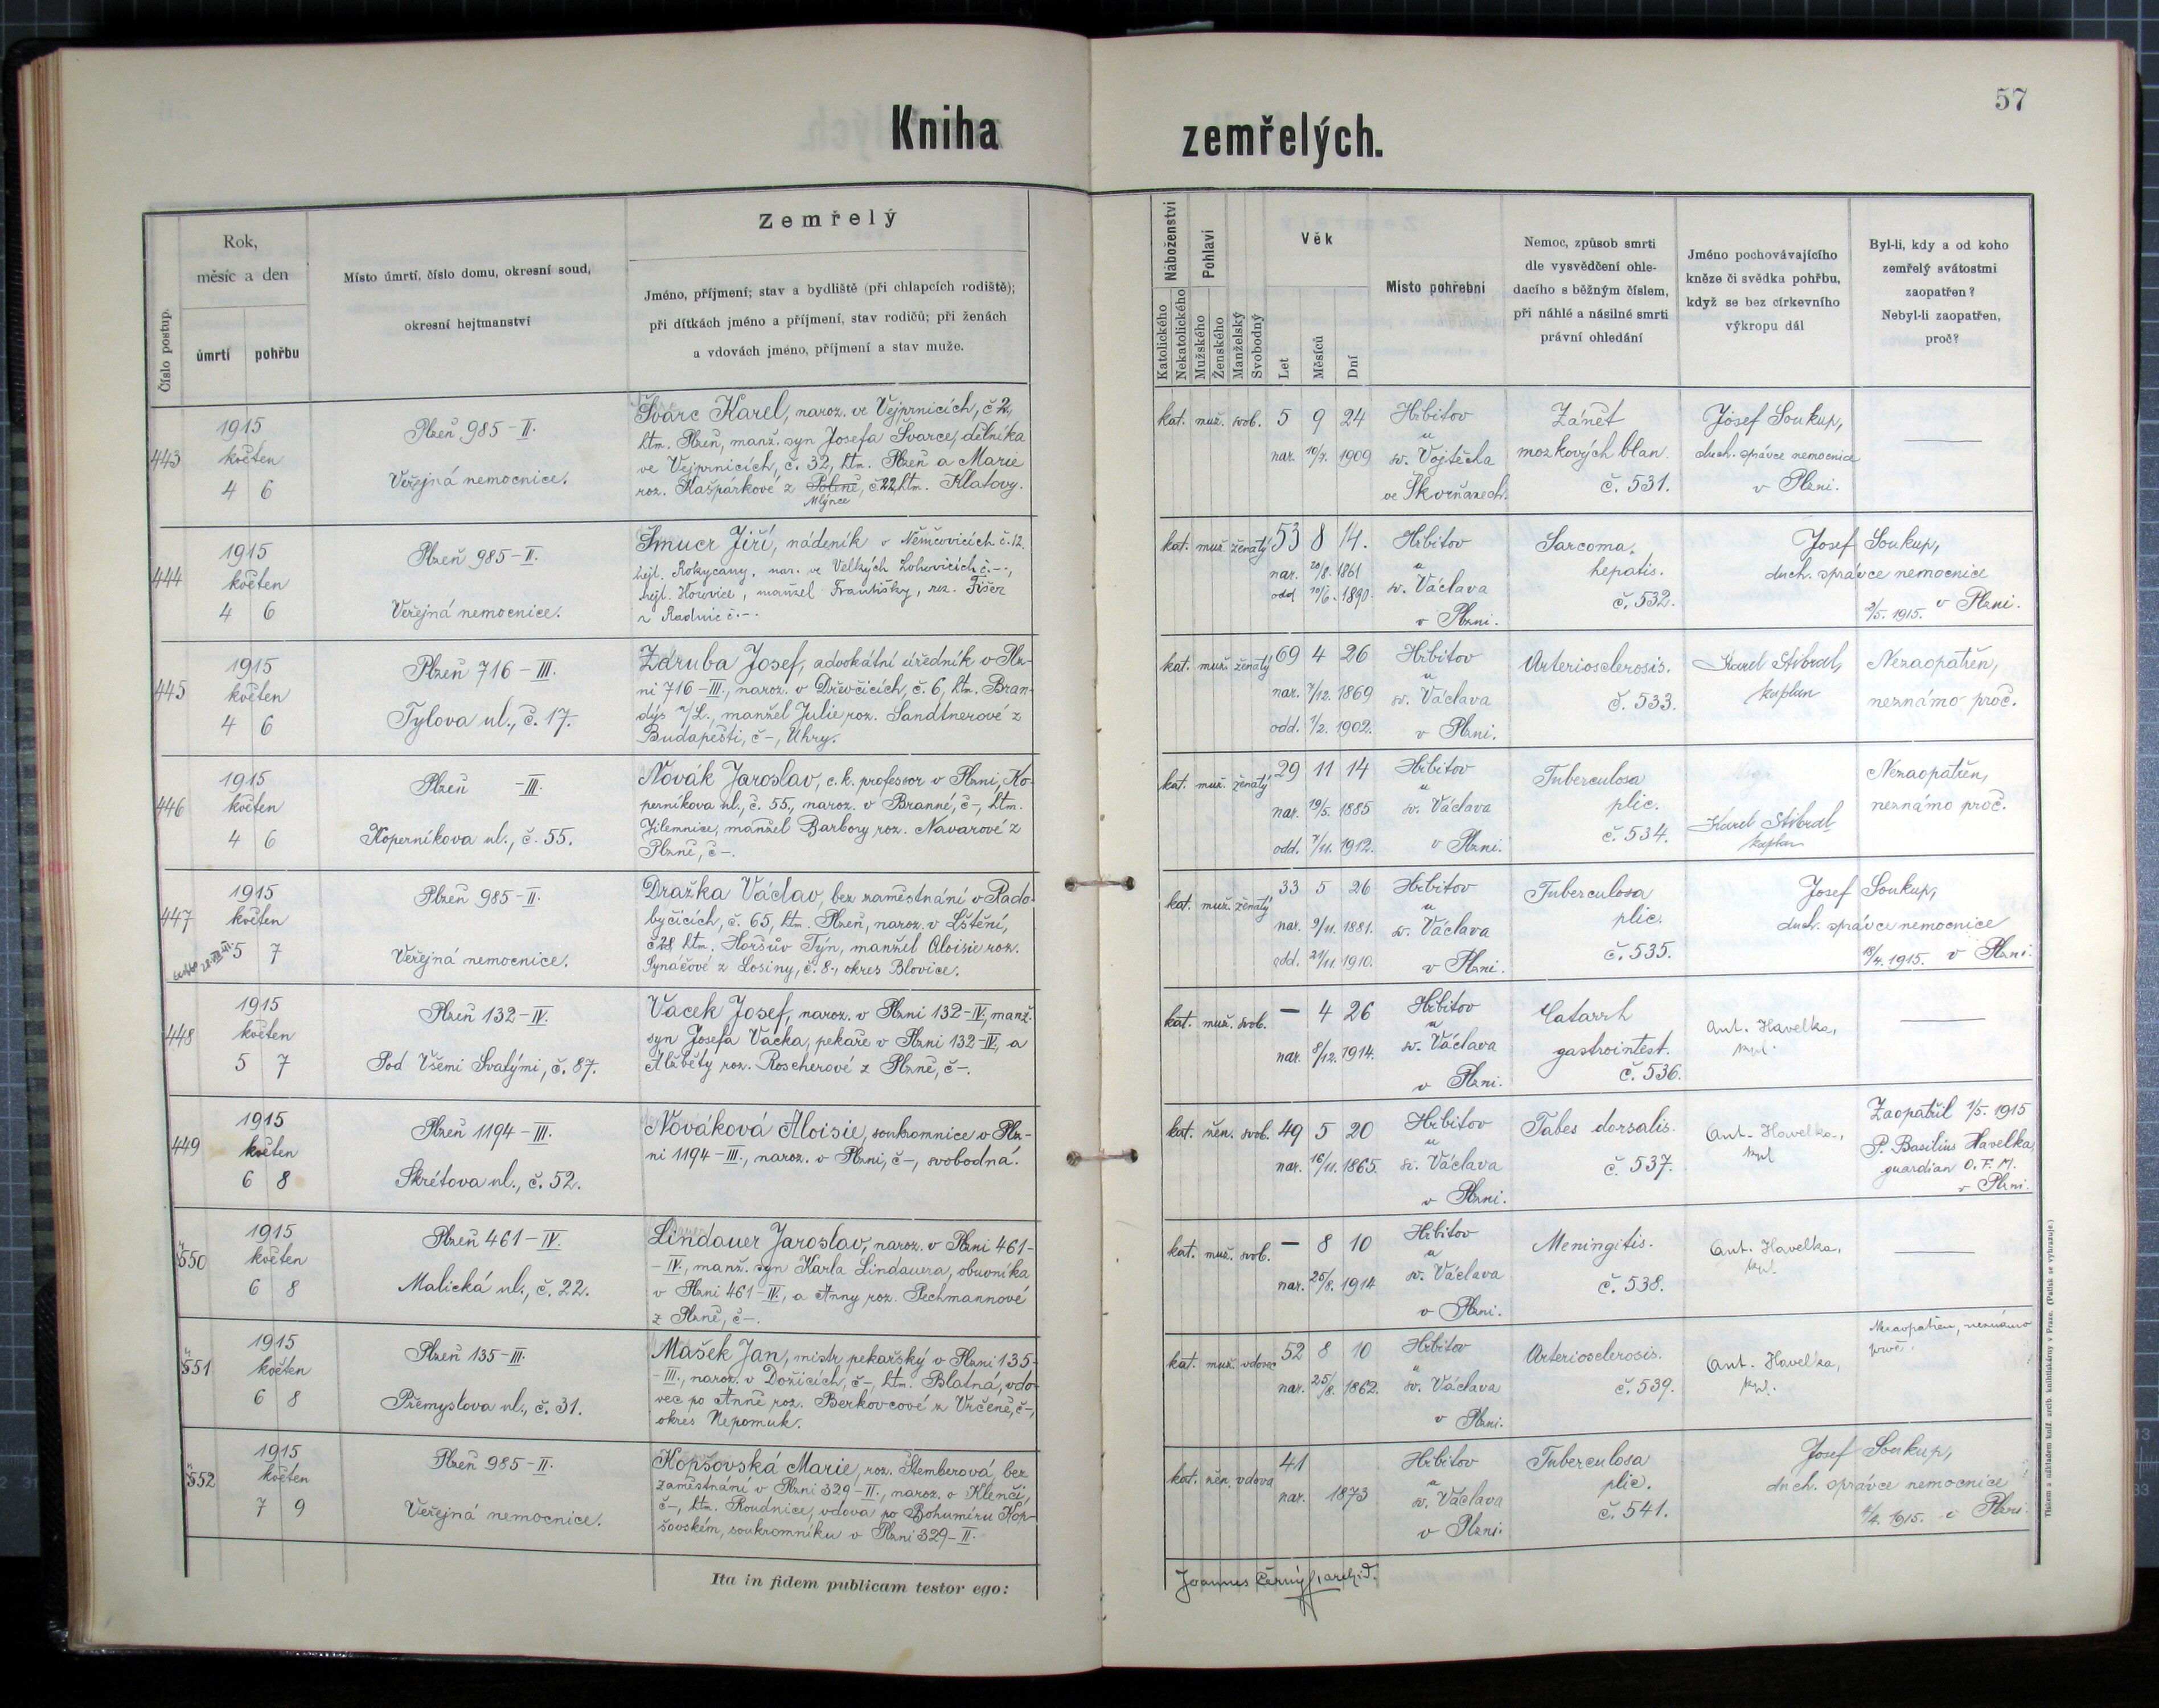 57
Kniha zemřelých.
Číslo postup.
Rok,
měsíc a den
úmrtí
pohřbu
Místo úmrtí, číslo domu, okresní soud,
okresní hejtmanství
Zemřelý
Jméno, příjmení; stav a bydliště (při chlapcích rodiště);
při dítkách jméno a příjmení, stav rodičů; při ženách
a vdovách jméno, příjmení a stav muže.
Náboženství
Katolického
Nekatolického
Pohlaví
Mužského
Ženského
Manželský
Svobodný
Věk
Let
Měsíců
Dní
Místo pohřební
Nemoc, způsob smrti
dle vysvědčení ohle-
dacího s běžným číslem,
při náhlé a násilné smrti
právní ohledání
Jméno pochovávajícího
kněze či svědka pohřbu,
když se bez církevního
výkropu dál
Byl-li, kdy a od koho
zemřelý svátostmi
zaopatřen?
Nebyl-li zaopatřen,
proč?
443
1915
květen
4 6
Plzeň 985-II.
Veřejná nemocnice.
Švarc Karel, naroz. ve Vejprnicích, č 2,
htm. Plzeň, manž. syn Josefa Švarce, dělníka
ve Vejprnicích, č. 32, htm. Plzeň a Marie
roz. Kašpárkové z Poleně, č 22, htm. Klatovy.
Mlýnce
kat. muž. svob. 5 9 24
nar. 10/7. 1909
Hřbitov
u
sv. Vojtěcha
ve Skvrňanech.
Zánět
mozkových blan.
č. 531.
Josef Soukup,
duch. správce nemocnice
v Plzni.
444
1915
květen
4 6
Plzeň 985-II.
Veřejná nemocnice.
Šmucr Jiří, nádeník v Němčovicích č. 12.
hejt. Rokycany, nar. ve Velkých Lohovicích č.-.,
hejt. Hořovice, manžel Františky, roz. Fišer
z Radnic č.-.
kat. muž. ženatý 53 8 14.
nar. 20/8. 1861
odd. 10/6. 1890.
Hřbitov
u
sv. Václava
v Plzni.
Sarcoma
hepatis.
č. 532.
Josef Soukup,
duch. správce nemocnice
2/5. 1915. v Plzni.
445
1915
květen
4 6
Plzeň 716-III.
Tylova ul., č. 17.
Záruba Josef, advokátní úředník v Plz-
ni 716-III., naroz. v Dřevčicích, č. 6, htm. Bran-
dýs n/L., manžel Julie roz. Sandtnerové z
Budapešti, č-, Uhry.
kat. muž. ženatý 69 4 26
nar. 7/12. 1869
odd. 1/2. 1902.
Hřbitov
u
sv. Václava
v Plzni.
Arteriosclerosis.
č. 533.
Karel Stibral,
kaplan
Nezaopatřen,
neznámo proč.
446
1915
květen
4 6
Plzeň -III.
Koperníkova ul., č. 55.
Novák Jaroslav, c. k. professor v Plzni, Ko-
perníkova ul., č. 55., naroz. v Branné, č-, htm.
Jilemnice, manžel Barbory roz. Navarové z
Plzně, č-.
kat. muž. ženatý 29 11 14
nar. 19/5. 1885
odd. 7/11. 1912.
Hřbitov
u
sv. Václava
v Plzni.
Tuberculosa
plic.
č. 534.
Karel Stibral
kaplan
Nezaopatřen,
neznámo proč.
447
1915
květen
5 7
Plzeň 985-II.
Veřejná nemocnice.
Dražka Václav, bez zaměstnání v Rado-
byčicích, č. 65, htm. Plzeň, naroz. v Lštění,
č 28 htm. Horšův Týn, manžel Aloisie roz.
Synáčové z Losiny, č. 8., okres Blovice.
kat. muž. ženatý 33 5 26
nar. 9/11. 1881.
odd. 21/11. 1910.
Hřbitov
u
sv. Václava
v Plzni.
Tuberculosa
plic.
č. 535.
Josef Soukup,
duch. správce nemocnice
18/4. 1915. v Plzni.
448
1915
květen
5 7
Plzeň 132-IV.
Pod Všemi Svatými, č. 87.
Vacek Josef, naroz. v Plzni 132-IV., manž.
syn Josefa Vacka, pekaře v Plzni 132-IV., a
Alžběty roz. Roscherové z Plzně, č-.
kat. muž. svob. - 4 26
nar. 8/12. 1914.
Hřbitov
u
sv. Václava
v Plzni.
Catarrh
gastrointest.
č. 536.
Ant. Havelka,
kpl.
449
1915
květen
6 8
Plzeň 1194-III.
Skrétova ul., č. 52.
Nováková Aloisie, soukromnice v Plz-
ni 1194-III., naroz. v Plzni, č-, svobodná.
kat. žen. svob. 49 5 20
nar. 16/11. 1865.
Hřbitov
u
sv. Václava
v Plzni.
Tabes dorsalis.
č. 537.
Ant. Havelka,
kpl
Zaopatřil 1/5. 1915
P. Basilius Havelka,
guardian O. F. M.
v Plzni.
550
1915
květen
6 8
Plzeň 461-IV.
Malická ul., č. 22.
Lindauer Jaroslav, naroz. v Plzni 461-
-IV., manž. syn Karla Lindauera, obuvníka
v Plzni 461-IV., a Anny roz. Pechmannové
z Plzně, č-.
kat. muž. svob. - 8 10
nar. 25/8. 1914
Hřbitov
u
sv. Václava
v Plzni.
Meningitis.
č. 538.
Ant. Havelka,
kpl.
551
1915
květen
6 8
Plzeň 135-III.
Přemyslova ul., č. 31.
Mašek Jan, mistr pekařský v Plzni 135-
-III., naroz. v Dožicích, č-, htm. Blatná, vdo-
vec po Anně roz. Berkovcové z Vrčeně, č-,
okres Nepomuk.
kat. muž. vdovec 52 8 10
nar. 25/8. 1862.
Hřbitov
u
sv. Václava
v Plzni.
Arteriosclerosis.
č. 539.
Ant. Havelka,
kpl.
Nezaopatřen, neznámo
proč.
552
1915
květen
7 9
Plzeň 985-II.
Veřejná nemocnice.
Kopšovská Marie, roz. Štemberová, bez
zaměstnání v Plzni 329-II., naroz. v Klenči,
č-, htm. Roudnice, vdova po Bohumíru Kop-
šovském, soukromníku v Plzni 329-II.
kat. žen. vdova 41
nar. 1873
Hřbitov
u
sv. Václava
v Plzni.
Tuberculosa
plic.
č. 541.
Josef Soukup,
duch. správce nemocnice
4/4. 1915. v Plzni.
Ita in fidem publicam testor ego:
Joannes Černý, archid.
Tiskem a nákladem kníž. arcib. knihtiskárny v Praze. (Patisk se vyhražuje.)